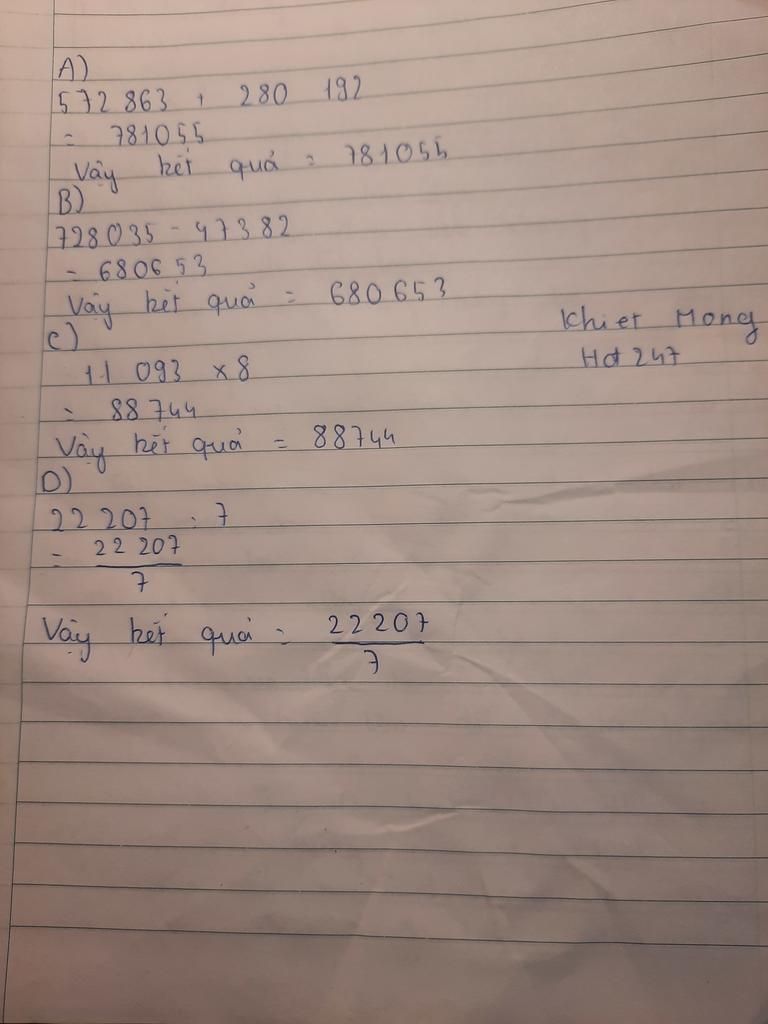 A)
572 863 + 280 192
= 781055
Vậy kết quả = 781055
B)
728035 - 47382
= 680653
Vậy kết quả = 680653
Khiet Mong
C)
Hd 247
11 093 x 8
= 88744
Vậy kết quả = 88744
D)
22 207 : 7
= 22 207
7
Vậy kết quả = 22207
7